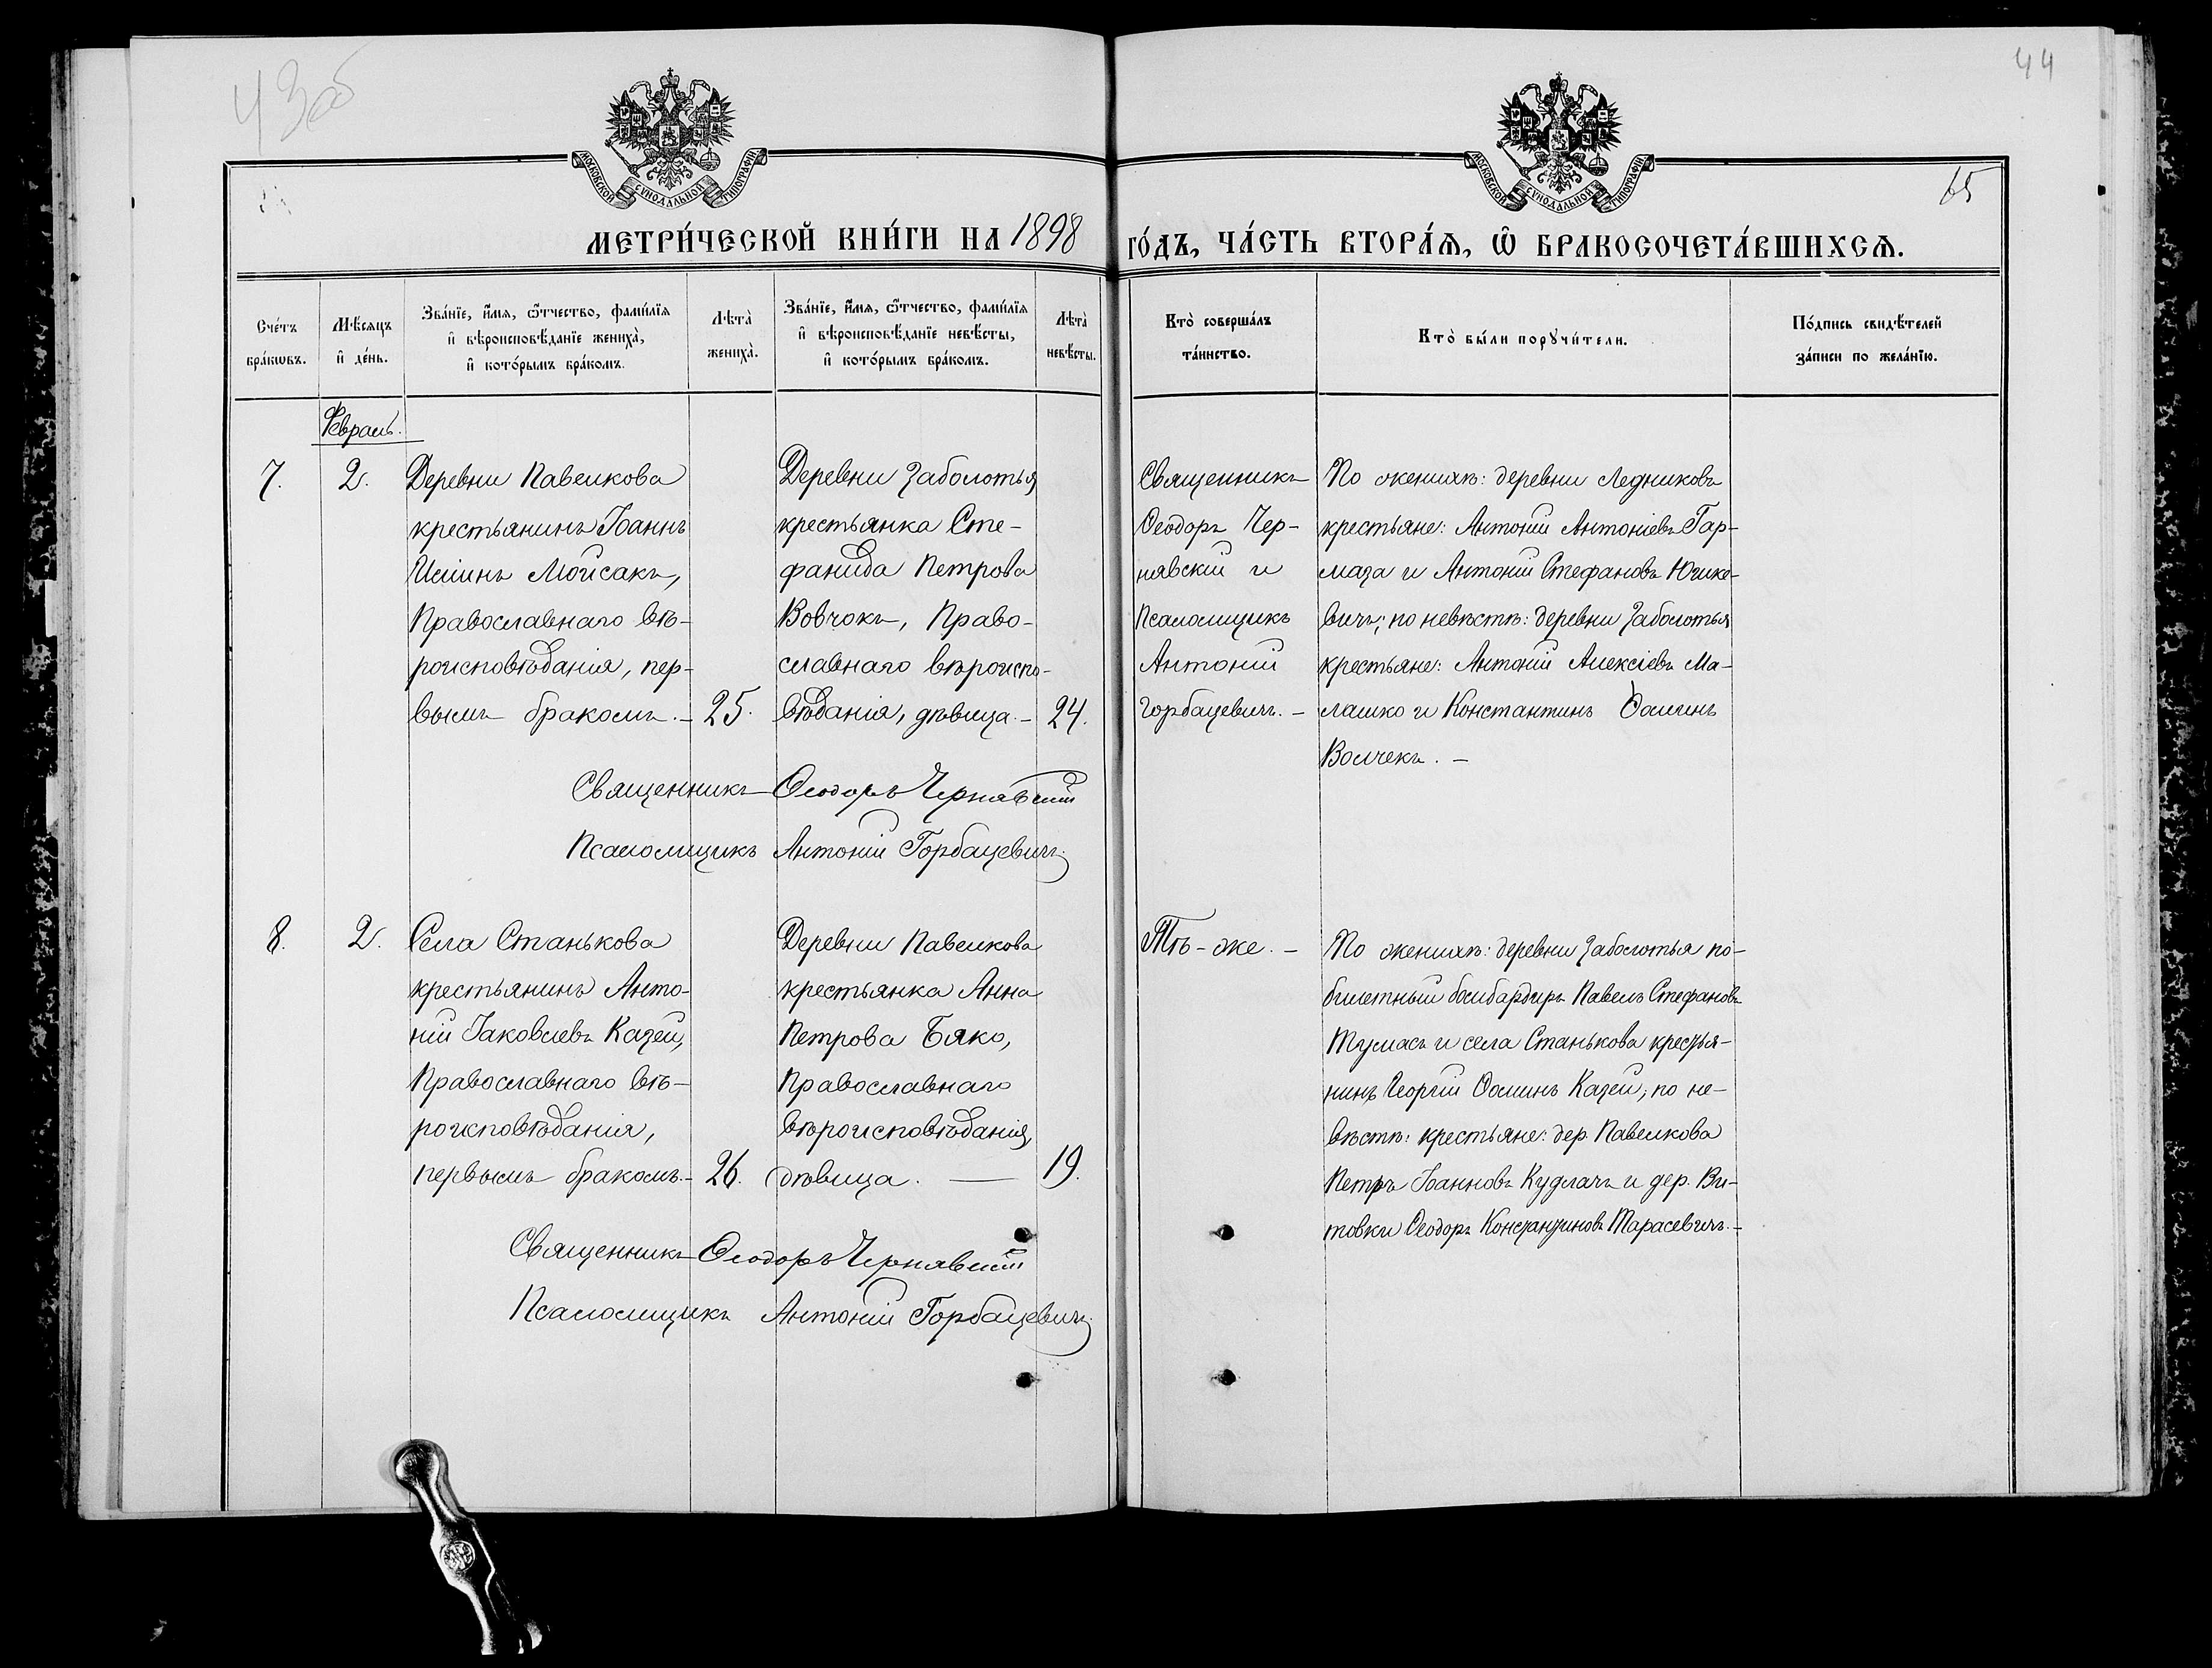 43об
44
65
МОСКОВСКОЙ СѴНОДАЛЬНОЙ ТИПОГРАФІИ
МОСКОВСКОЙ СѴНОДАЛЬНОЙ ТИПОГРАФІИ
МЕТРИ́ЧЕСКОЙ КНИ́ГИ НА 1898 ГО́ДЪ, ЧА́СТЬ ВТОРА́Я, Ѡ БРАКОСОЧЕТА́ВШИХСЯ.
Сче́тъ
бра́ковъ.
Мѣ́сяцъ
и҆ де́нь.
Зва́нїе, и҆́мя, ѻ҆́тчество, фами́лїя
и҆ вѣроисповѣ́данїе жениха̀,
и҆ кото́рымъ бра́комъ.
Лѣта̀
жениха̀.
Зва́нїе, и҆́мя, ѻ҆́тчество, фами́лїя
и҆ вѣроисповѣ́данїе невѣ́сты,
и҆ кото́рымъ бра́комъ.
Лѣта̀
невѣ́сты.
Кто̀ соверша́лъ
та́инство.
Кто̀ бы́ли порꙋчи́тели.
По́дпись свидѣ́телей
за́писи по жела́нїю.
Февраль.
7.
2.
Деревни Павелкова
крестьянинъ Іоаннъ
Ильинъ Мойсакъ,
Православнаго вѣ-
роисповѣданія, пер-
вымъ бракомъ. -
25.
Деревни Заболотья
крестьянка Сте-
фанида Петрова
Вовчокъ, Право-
славнаго вѣроиспо-
вѣданія, дѣвица. -
24.
Священникъ
Ѳеодоръ Чер-
нявскій и
Псаломщикъ
Антоній
Горбацевичъ. -
По женихѣ: деревни Ледниковъ
крестьяне: Антоній Антоніевъ Гар-
маза и Антоній Стефановъ Юшке-
вичъ; по невѣстѣ: деревни Заболотья
крестьяне: Антоній Алексіевъ Ма-
лашко и Константинъ Ѳоминъ
Волчекъ. -
Священникъ Ѳеодоръ Чернявскій
Псаломщикъ Антоній Горбацевичъ
8.
2.
Села Станькова
крестьянинъ Анто-
ній Іаковлевъ Казей,
Православнаго вѣ-
роисповѣданія,
первымъ бракомъ. -
26.
Деревни Павелкова
крестьянка Анна
Петрова Бяко,
Православнаго
вѣроисповѣданія,
дѣвица. -
19.
Тѣ-же. -
По женихѣ: деревни Заболотья по-
билетный бомбардиръ Павелъ Стефановъ
Тумасъ и села Станькова крестья-
нинъ Георгій Ѳоминъ Казей; по не-
вѣстѣ: крестьяне: дер. Павелкова
Петръ Іоанновъ Кудлачъ и дер. Ви-
товки Ѳеодоръ Константиновъ Тарасевичъ. -
Священникъ Ѳеодоръ Чернявскій
Псаломщикъ Антоній Горбацевичъ